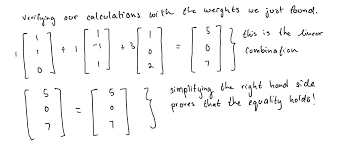 verifying our calculations with the weights we just found.
1 [1 1 0] + 1 [1 -1 1] + 3 [1 0 2] = [5 0 7] } this is the linear combination
[5 0 7] = [5 0 7] } simplifying the right hand side proves that the equality holds!